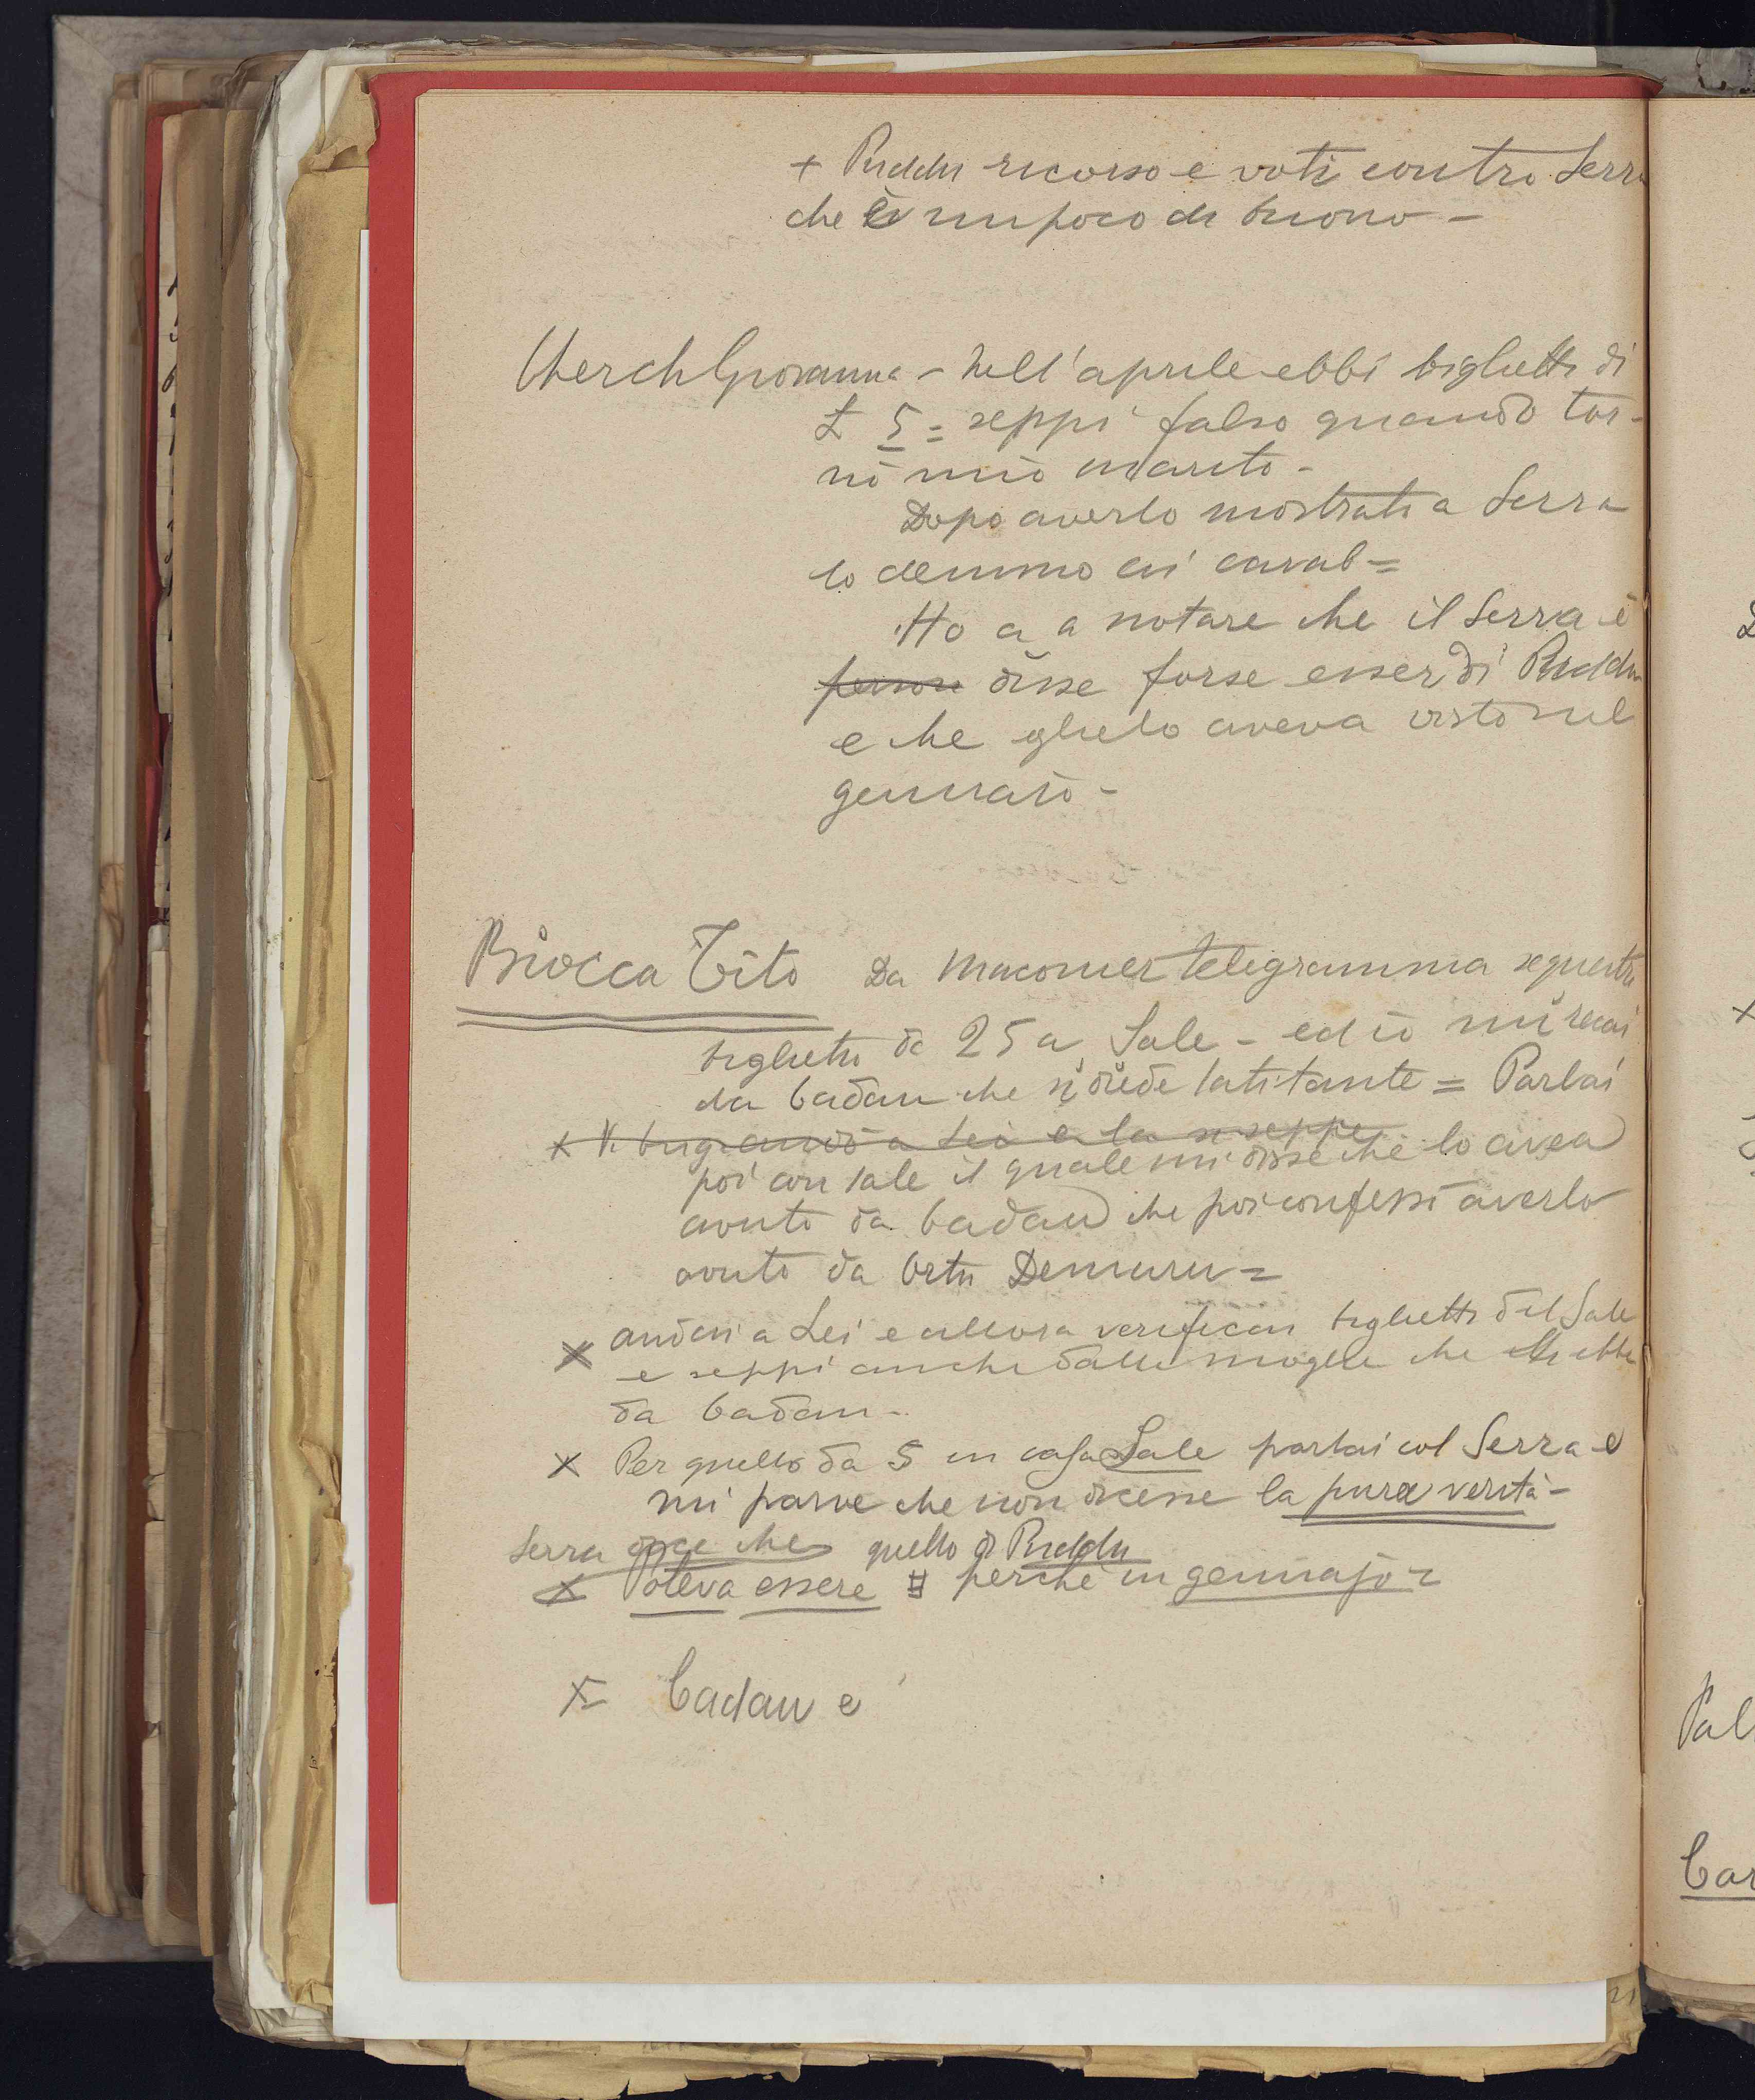 + Puddu ricorso e voti contro Serra
che è un poco di buono -
Cherchi Giovanna - Nell'aprile ebbi biglietto di
£ 5 = seppi falso quando tor-
nò mio marito -
Dopo averlo mostrato a Serra
lo demmo ai carab =
Ho a a notare che il Serra è
persona disse forse esser di Puddu
e che glielo aveva visto nel
gennaio -
Biocca Tito Da Macomer telegramma sequestro
biglietto da 25 a Sale - ed io mi recai
da Cadau che si diede latitante = Parlai
poi con Sale il quale mi disse che lo avea
avuto da Cadau che poi confessò averlo
avuto da Ortu Demuru =
x andai a Lei e allora verificai biglietto del Sale
e seppi anche dalla moglie che ebbe
da Cadau -
x Per quello da 5 in casa Sale parlai col Serra e
mi parve che non dicesse la pura verità -
Serra dice che quello di Puddu
x Poteva essere # perchè in gennajo =
x Cadau e
Pal
Car